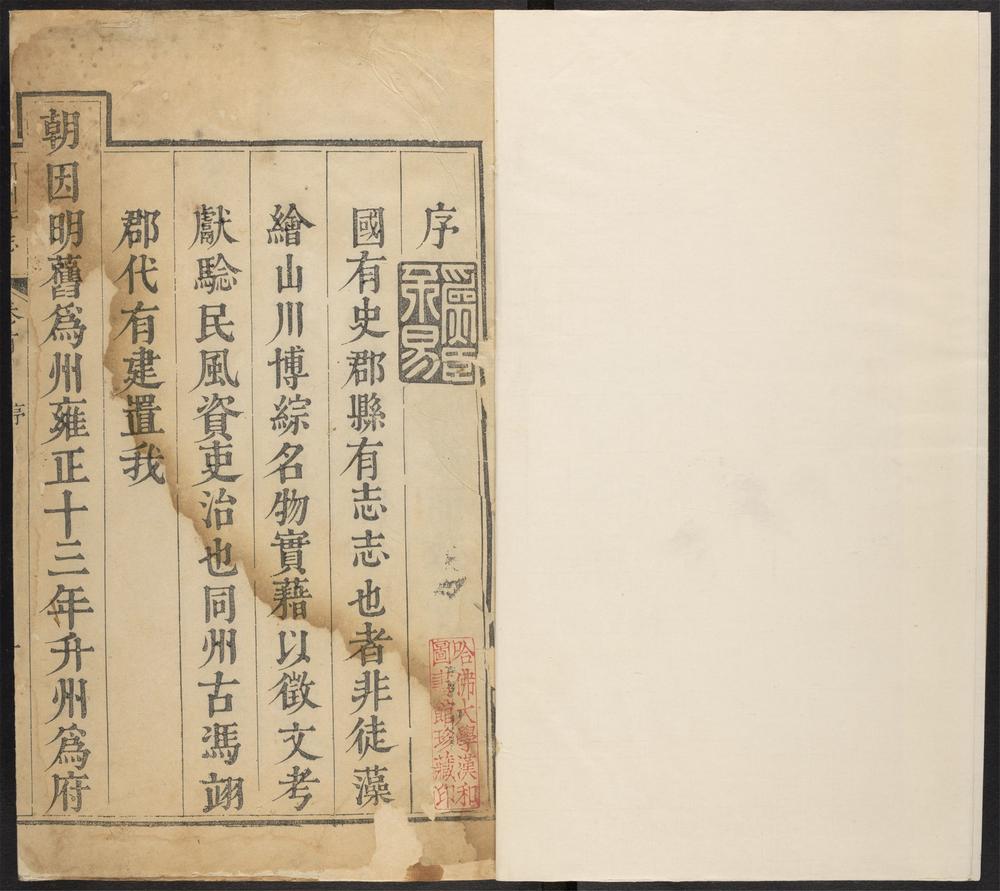 序
國有史郡縣有志志也者非徒藻
繪山川博綜名物實藉以徵文考
獻騐民風資吏治也同州古馮翊
郡代有建置我
朝因明舊爲州雍正十三年升州爲府
哈佛大學漢和
圖書館珍藏印
序